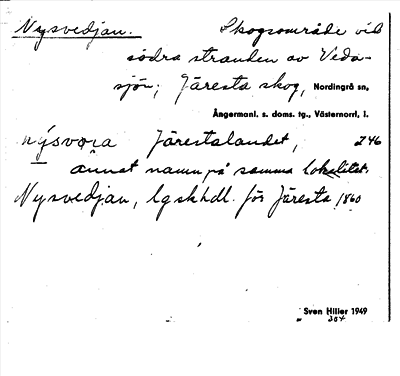 Nysvedjan. Skogsområde vid
södra stranden av Veda-
sjön; Järesta skog, Nordingrå sn,
Ångermanl. s. doms. tg., Västernorrl. l.
Järestalandet, 246
annat namn på samma lokalitet.
Nysvedjan, lgskhdl. för Järesta 1860
Sven Hiller 1949
204